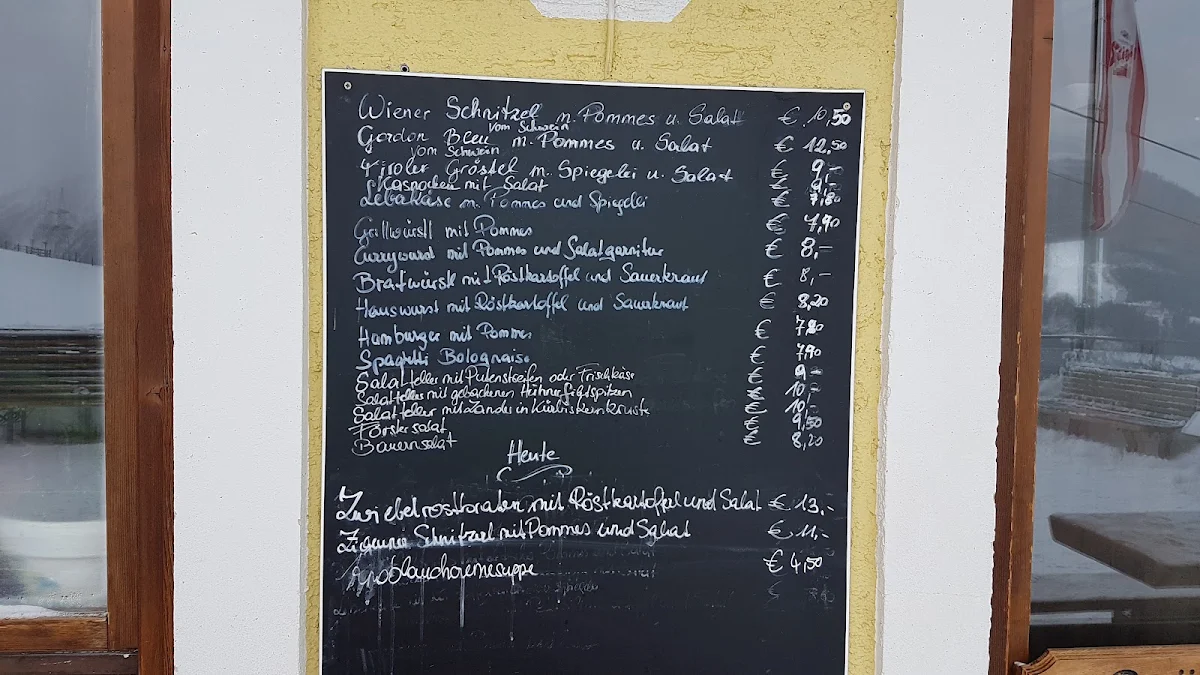 Wiener Schnitzel m. Pommes u. Salat € 10,50
vom Schwein
Gordon Bleu m. Pommes u. Salat € 12,50
vom Schwein
Tiroler Gröstel m. Spiegelei u. Salat € 9,-
Kasnocken mit Salat € 9,-
Leberkäse m. Pommes und Spiegelei € 7,80
Grillwürstl mit Pommes € 7,90
Currywurst mit Pommes und Salatgarnitur € 8,-
Bratwürstl mit Röstkartoffel und Sauerkraut € 8,-
Hauswurst mit Röstkartoffel und Sauerkraut € 8,20
Hamburger mit Pommes € 7,80
Spagetti Bolognaise € 7,90
Salatteller mit Putenstreifen oder Frischkäse € 9,-
Salatteller mit gebackenen Hühnerfiletspitzen € 10,-
Salatteller mit Zander in Kürbiskernkruste € 10,-
Förstersalat € 9,50
Bauernsalat € 8,20
Heute
Zwiebelrostbraten mit Röstkartoffel und Salat € 13,-
Zigeuner Schnitzel mit Pommes und Salat € 11,-
Knoblauchcremesuppe € 4,50